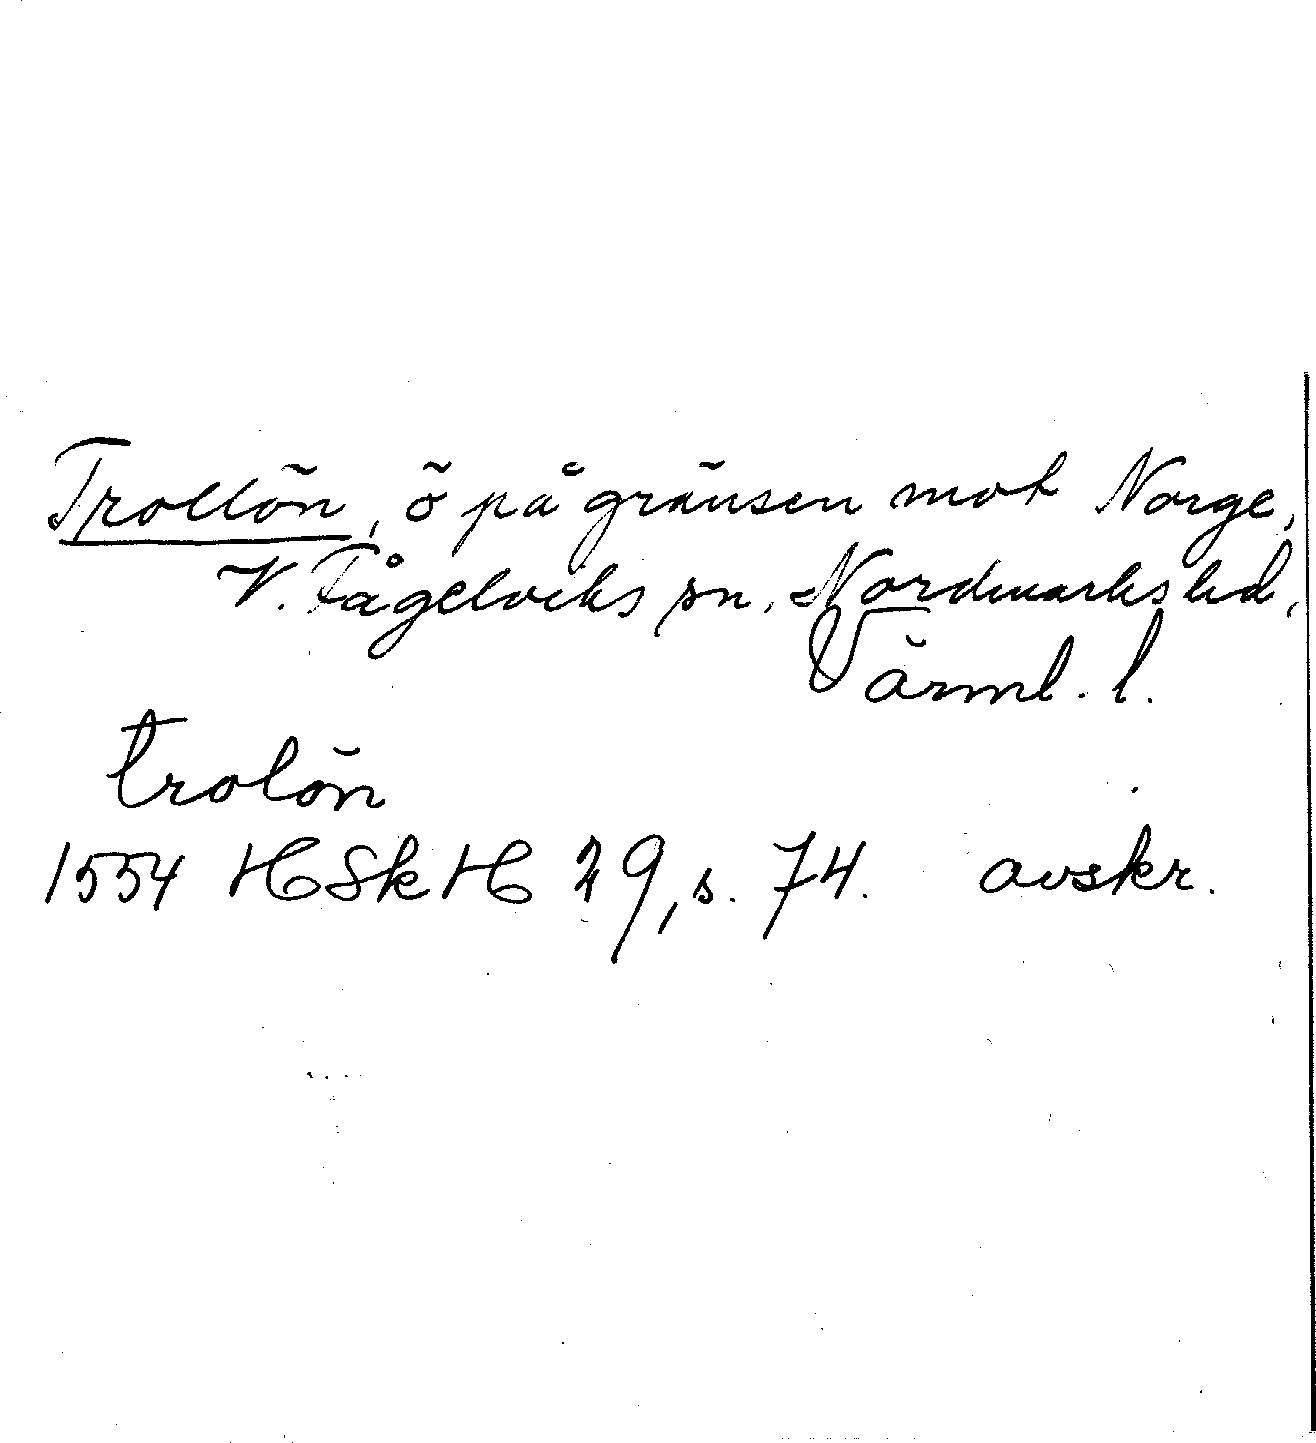 Trollön, ö på gränsen mot Norge,
V. Fågelviks sn, Nordmarks hd,
Värml. l.
trolön
1554 HSkH 29, s. 74. avskr.